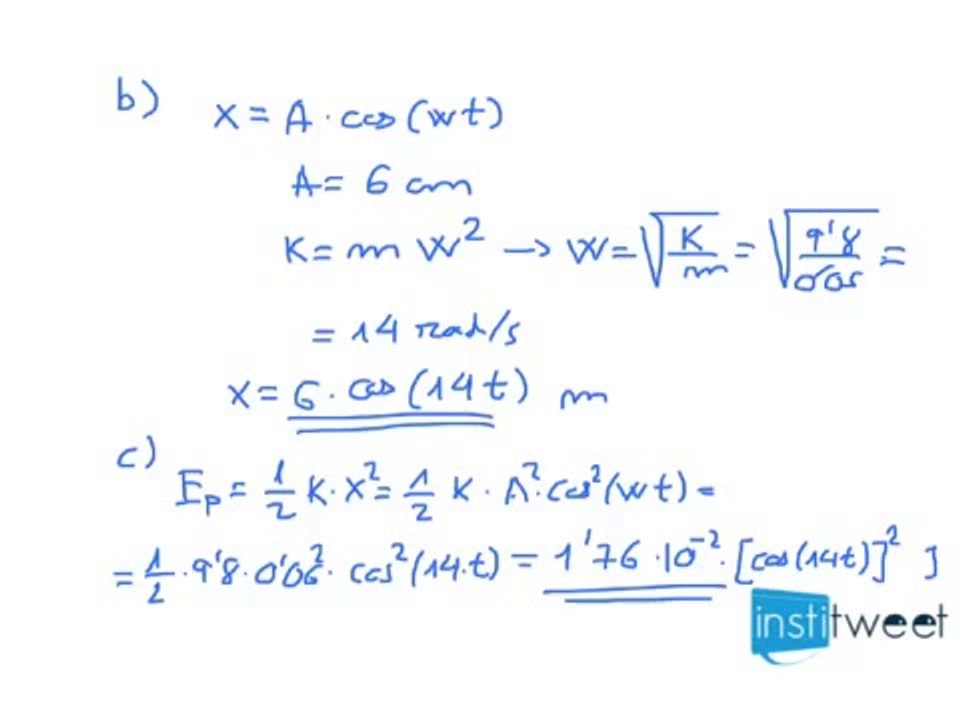 b) x = A · cos (wt)
A = 6 cm
K = m w² → w = √(K/m) = √(9'8/0'05) =
= 14 rad/s
x = 6 · cos (14t) m
c) Ep = 1/2 K · x² = 1/2 K · A² · cos² (wt) =
= 1/2 · 9'8 · 0'06² · cos² (14·t) = 1'76 · 10⁻² · [cos (14t)]² J
institweet